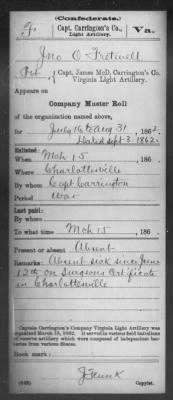 (Confederate.)
F | Capt. Carrington's Co., Light Artillery. | Va.
Jno O Fretwell
Pvt, Capt. James McD. Carrington's Co. Virginia Light Artillery.
Appears on
Company Muster Roll
of the organization named above,
for July 16 to Aug 31, 1862.
Dated Sept 3. 1862.
Enlisted:
When Mch 15, 186
Where Charlottesville
By whom Capt Carrington
Period War
Last paid:
By whom
To what time Mch 15, 186
Present or absent Absent
Remarks: Absent sick since June
12th on Surgeons Certificate
in Charlottesville
Captain Carrington's Company Virginia Light Artillery was
organized March 15, 1862. It served in various field battalions
of reserve artillery which were composed of independent bat-
teries from various States.
Book mark:
(642)
Copyist.